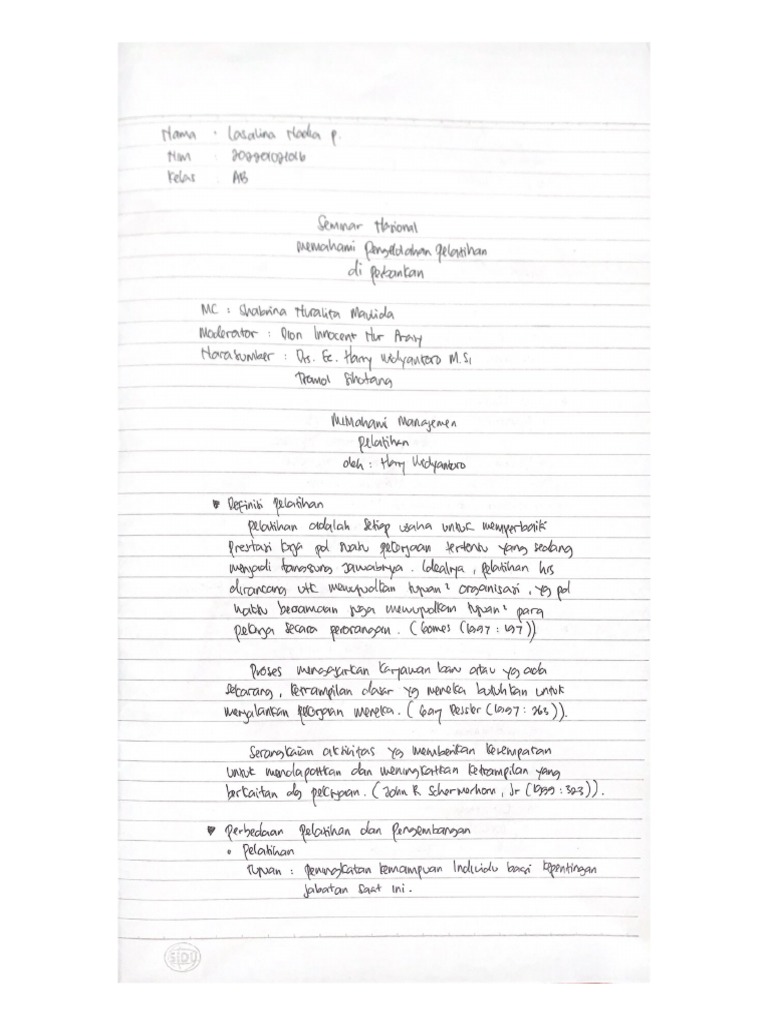 Nama : Lasalina Nadia P.
NIM :
Kelas : AB
Seminar Nasional
Memahami Pengelolahan Pelatihan
di Perbankan
MC : Shabrina Nuralita Maulida
Moderator : Dion Innocent Nur
Narasumber : Drs. Ec. Harry Widyantoro M.Si
Sihotang
Memahami Manajemen
Pelatihan
oleh : Harry Widyantoro
Definisi Pelatihan
Pelatihan adalah setiap usaha untuk memperbaiki
Prestasi kerja pd suatu pekerjaan tertentu yang sedang
menjadi tanggung jawabnya. Idealnya, pelatihan hrs
dirancang utk mewujudkan tujuan² organisasi, yg pd
waktu bersamaan juga mewujudkan tujuan² para
pekerja secara perorangan. (Gomes (1997 : 197))
Proses mengajarkan karyawan baru atau yg ada
sekarang, ketrampilan dasar yg mereka butuhkan untuk
menjalankan pekerjaan mereka. (Gary Dessler (1997 : 263)).
Serangkaian aktivitas yg memberikan kesempatan
untuk mendapatkan dan meningkatkan ketrampilan yang
berkaitan dg pekerjaan. (John R Schermerhorn, Jr (1999 : 323)).
Perbedaan Pelatihan dan Pengembangan
• Pelatihan
Tujuan : peningkatan kemampuan Individu bagi kepentingan
Jabatan saat ini.
SIDU